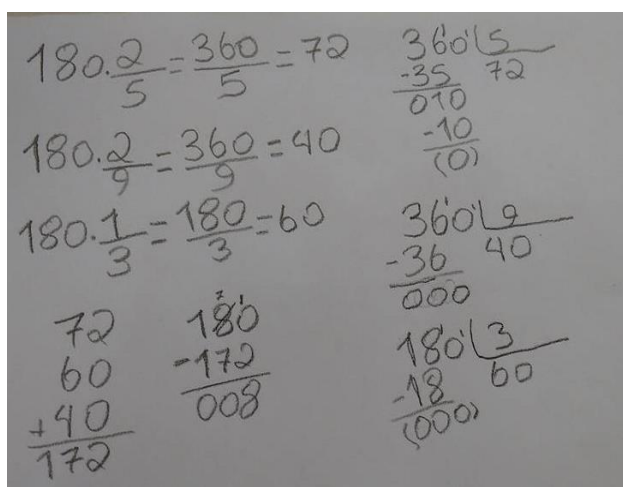 180.2/5=360/5=72
180.2/9=360/9=40
180.1/3=180/3=60
72
60
+40
172
180
-172
008
360 5
-35 72
010
-10
(0)
360 9
-36 40
000
180 3
-18 60
(000)